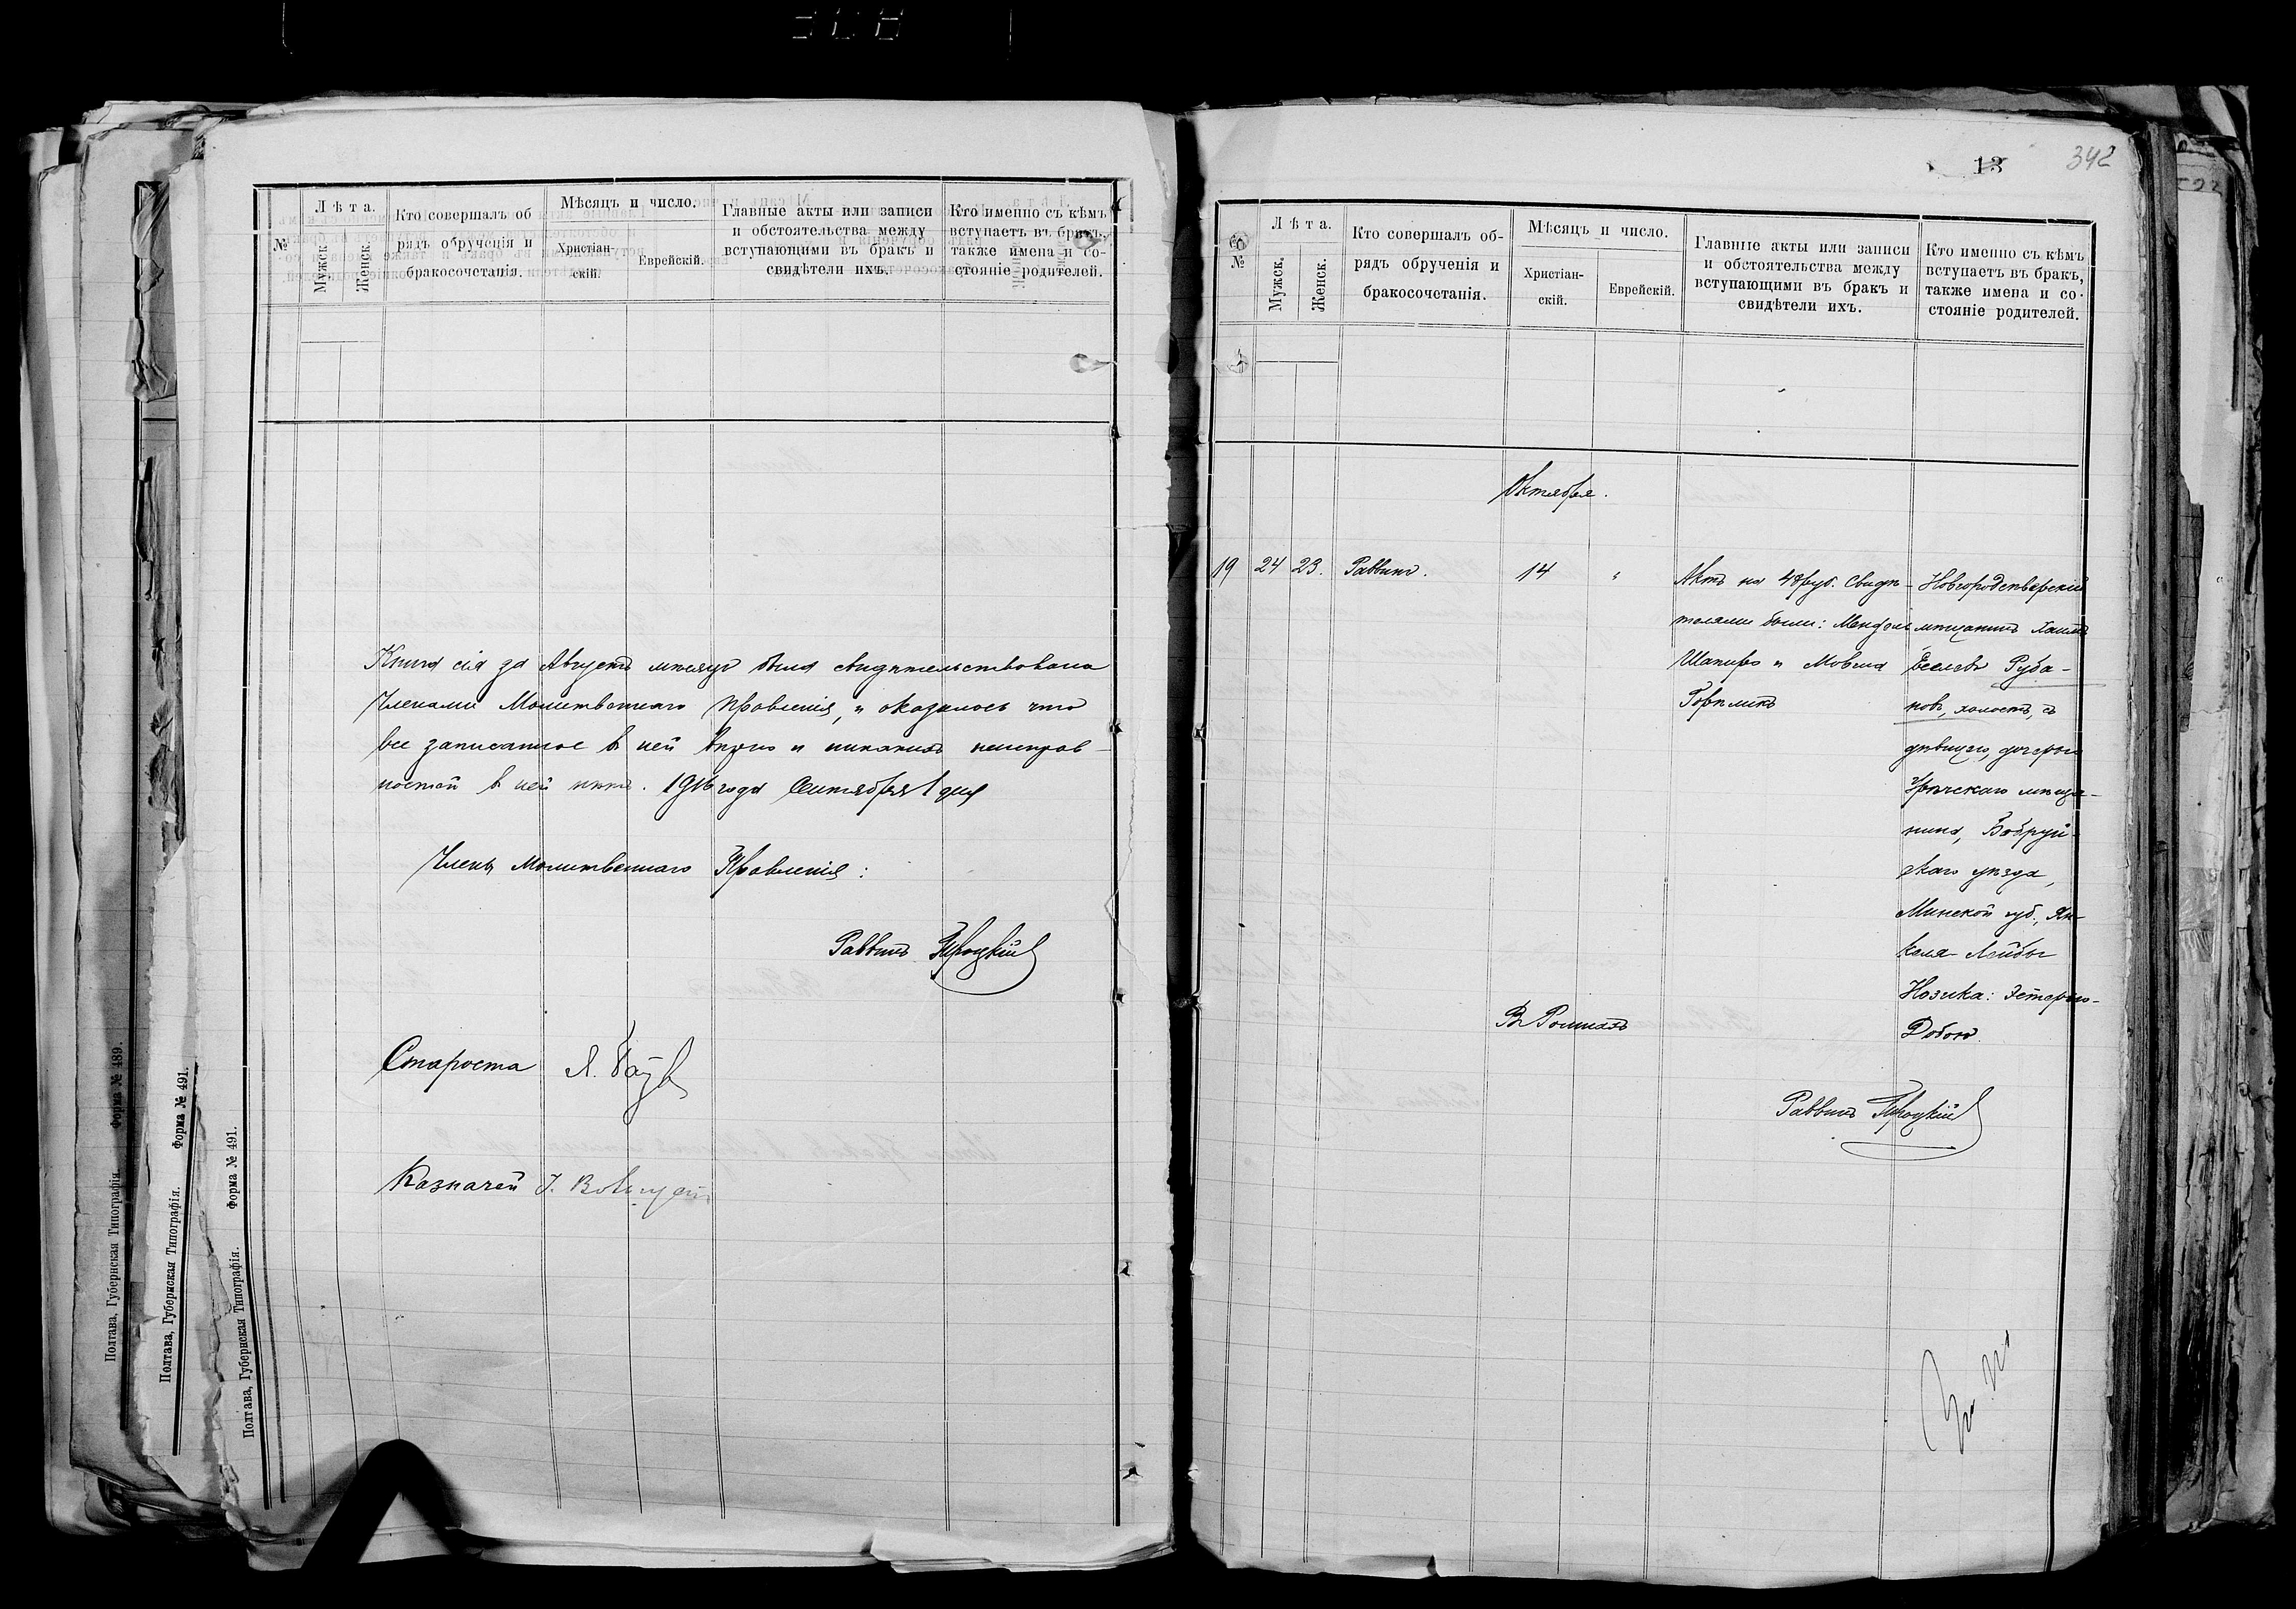 №
Лѣта.
Мужск.
Женск.
Кто совершалъ об
рядъ обрученія и
бракосочетанія.
Мѣсяцъ и число.
Христіан-
скій.
Еврейскій.
Главные акты или записи
и обстоятельства между
вступающими въ бракъ и
свидѣтели ихъ.
Кто именно съ кѣмъ
вступаетъ въ бракъ,
также имена и со-
стояніе родителей.
Книга сія за Августъ мѣсяцъ была свидѣтельствована
Членами Молитвеннаго Правленія, и оказалось что
все записанное въ ней вѣрно и никакихъ неисправ-
ностей въ ней нѣтъ. 1916 года Сентября 1 дня
Члены Молитвеннаго Правленія:
Раввинъ
Староста Я.
Казначей
Полтава, Губернская Типографія. Форма № 489.
Полтава, Губернская Типографія. Форма № 491.
Полтава, Губернская Типографія. Форма № 491.
13
342
№
Лѣта.
Мужск.
Женск.
Кто совершалъ об-
рядъ обрученія и
бракосочетанія.
Мѣсяцъ и число.
Христіан-
скій.
Еврейскій.
Главные акты или записи
и обстоятельства между
вступающими въ бракъ и
свидѣтели ихъ.
Кто именно съ кѣмъ
вступаетъ въ бракъ,
также имена и со-
стояніе родителей.
Октября.
19 24 23. Раввинъ. 14
Актъ на 48 руб. Свидѣ-
телями были: Мендель
Шапиро и Мовша
Горѣликъ
Новгородсѣверскій
мѣщанинъ Хаимъ
Еселевъ Руба-
новъ, холостъ, съ
дѣвицею, дочерью
Урѣчскаго мѣща-
нина, Бобруй-
скаго уѣзда,
Минской губ., Ян-
келя-Лейбы
Нозика: Эстерою-
Добою.
Въ Ромнахъ
Раввинъ